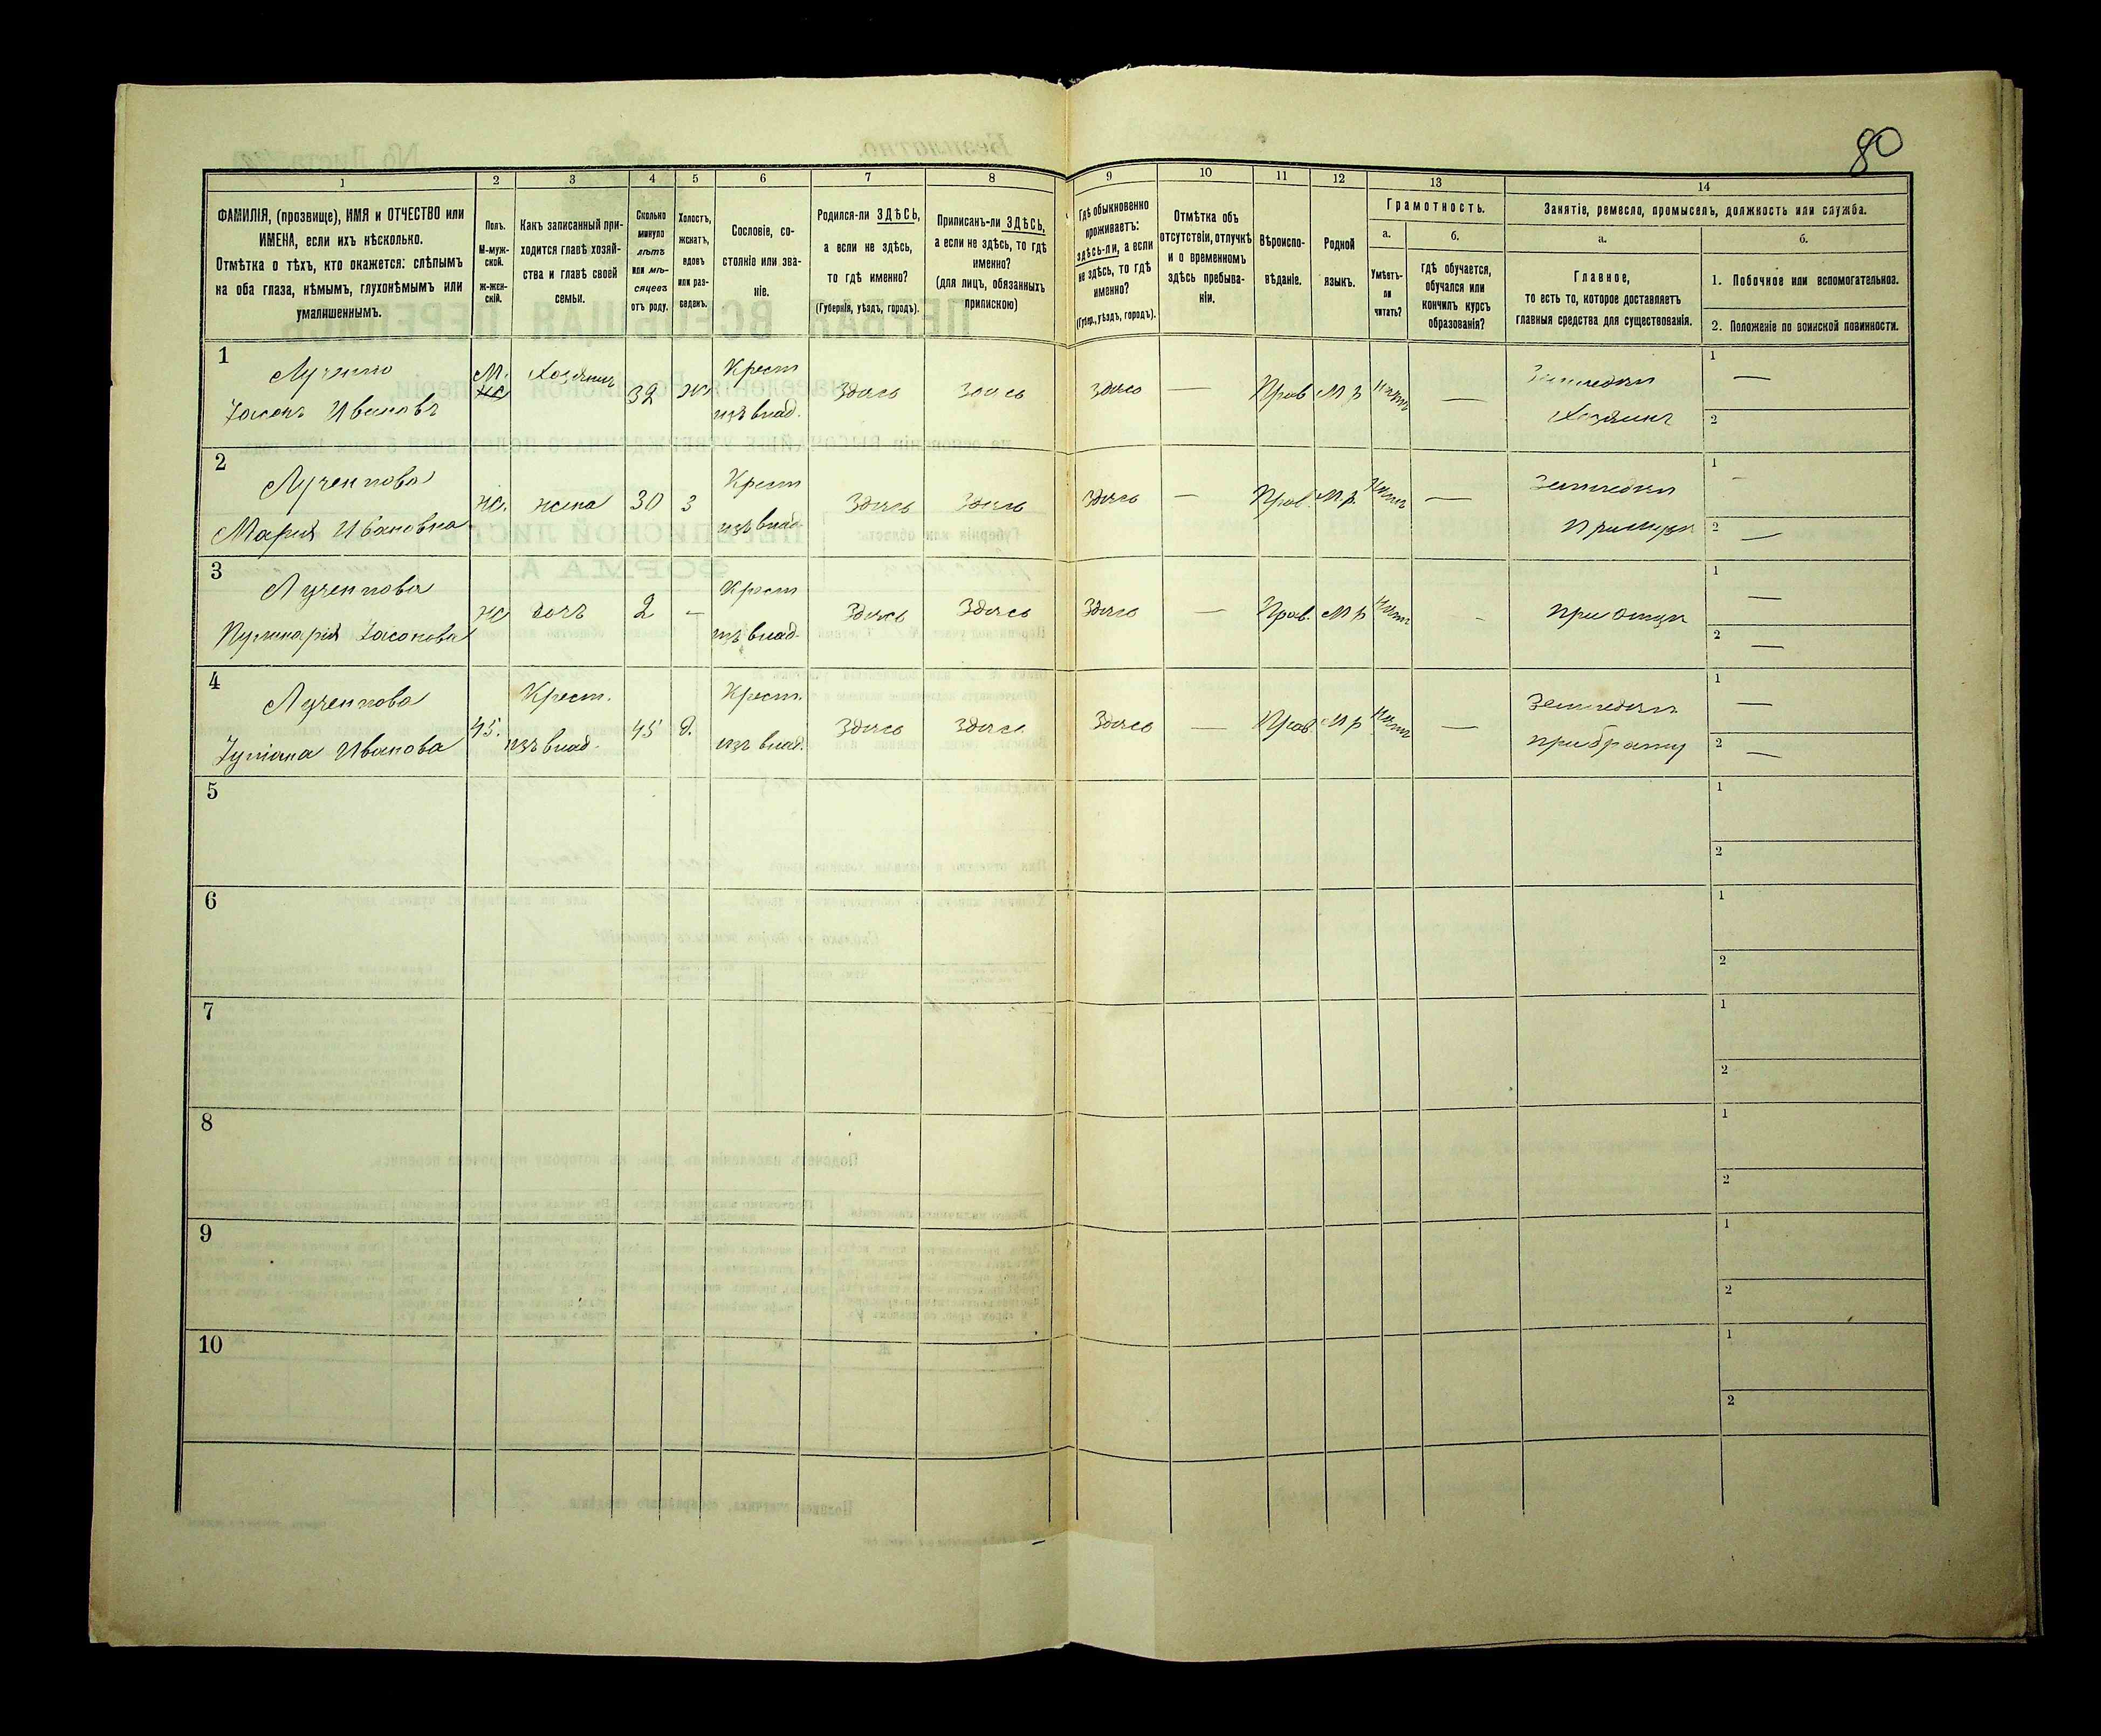 80
1 2 3 4 5 6 7 8 9 10 11 12 13 14
ФАМИЛІЯ, (прозвище), ИМЯ и ОТЧЕСТВО или
ИМЕНА, если ихъ нѣсколько.
Отмѣтка о тѣхъ, кто окажется: слѣпымъ
на оба глаза, нѣмымъ, глухонѣмымъ или
умалишеннымъ.
Полъ.
М-муж-
ской.
Ж-жен-
скій.
Какъ записанный при-
ходится главѣ хозяй-
ства и главѣ своей
семьи.
Сколько
минуло
лѣтъ
или мѣ-
сяцевъ
отъ роду.
Холостъ,
женатъ,
вдовъ
или раз-
веденъ.
Сословіе, со-
стояніе или зва-
ніе.
Родился-ли ЗДѢСЬ,
а если не здѣсь,
то гдѣ именно?
(Губернія, уѣздъ, городъ).
Приписанъ-ли ЗДѢСЬ,
а если не здѣсь, то гдѣ
именно?
(для лицъ, обязанныхъ
припискою)
Гдѣ обыкновенно
проживаетъ:
здѣсь-ли, а если
не здѣсь, то гдѣ
именно?
(Губер., уѣздъ, городъ).
Отмѣтка объ
отсутствіи, отлучкѣ
и о временномъ
здѣсь пребыва-
ніи.
Вѣроиспо-
вѣданіе.
Родной
языкъ.
Грамотность.
а.
Умѣетъ-
ли
читать?
б.
гдѣ обучается,
обучался или
кончилъ курсъ
образованія?
Занятіе, ремесло, промыселъ, должность или служба.
а.
Главное,
то есть то, которое доставляетъ
главныя средства для существованія.
б.
1. Побочное или вспомогательное.
2. Положеніе по воинской повинности.
1
Іасонъ Ивановъ
М. Хозяинъ 32 Крест изъ влад. Здѣсь Здѣсь Здѣсь — Прав М р Нѣтъ —
Хозяинъ
1 —
2
2
Марія Ивановна
ж. жена 30 З Крест изъ влад. Здѣсь Здѣсь Здѣсь — Прав. М. р. Нѣтъ —
1 -
2 —
3
ж дочь 2 - Крест изъ влад. Здѣсь Здѣсь Здѣсь — Прав. М р Нѣтъ -
при отцѣ
1 —
2 —
4
Ивановa
45. Крест. изъ влад. 45 Крест. изъ влад. Здѣсь Здѣсь Здѣсь — Прав М р Нѣтъ —
при брату
1 —
2 —
5
1
2
6
1
2
7
1
2
8
1
2
9
1
2
10
1
2